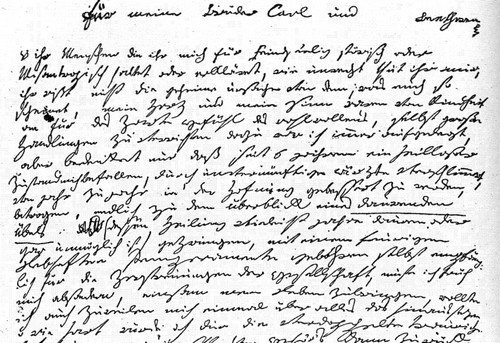 Für meine Brüder Carl und Beethoven
O ihr Menschen die ihr mich für feindseelig störisch oder
Misantropisch haltet oder erkläret, wie unrecht thut ihr mir,
ihr wißt nicht die geheime urßache von dem, was euch so
scheinet, mein Herz und mein Sinn waren von Kindheit
an für das Zarte gefühl des wohlwollens, selbst große
Handlungen zu verrichten dazu war ich immer aufgelegt,
aber bedenket nur daß seit 6 jahren ein heilloser
Zustand mich befallen, durch unvernünftige ärzte verschlimmert,
von jahr zu jahr in der Hofnung gebessert zu werden,
betrogen, endlich zu dem überblick eines daurenden
Übels dessen Heilung vieleicht jahre dauren oder
gar unmöglich ist gezwungen, mit einem feuerigen
Lebhaften Temperamente gebohren selbst empfäng-
lich für die Zerstreuungen der Gesellschaft, muste ich früh
mich absondern, einsam mein Leben zubringen, wollte
ich auch zuweilen mich einmal über alles das hinaussezen,
o wie hart wurde ich dur die verdoppelte traurige
dann zurück